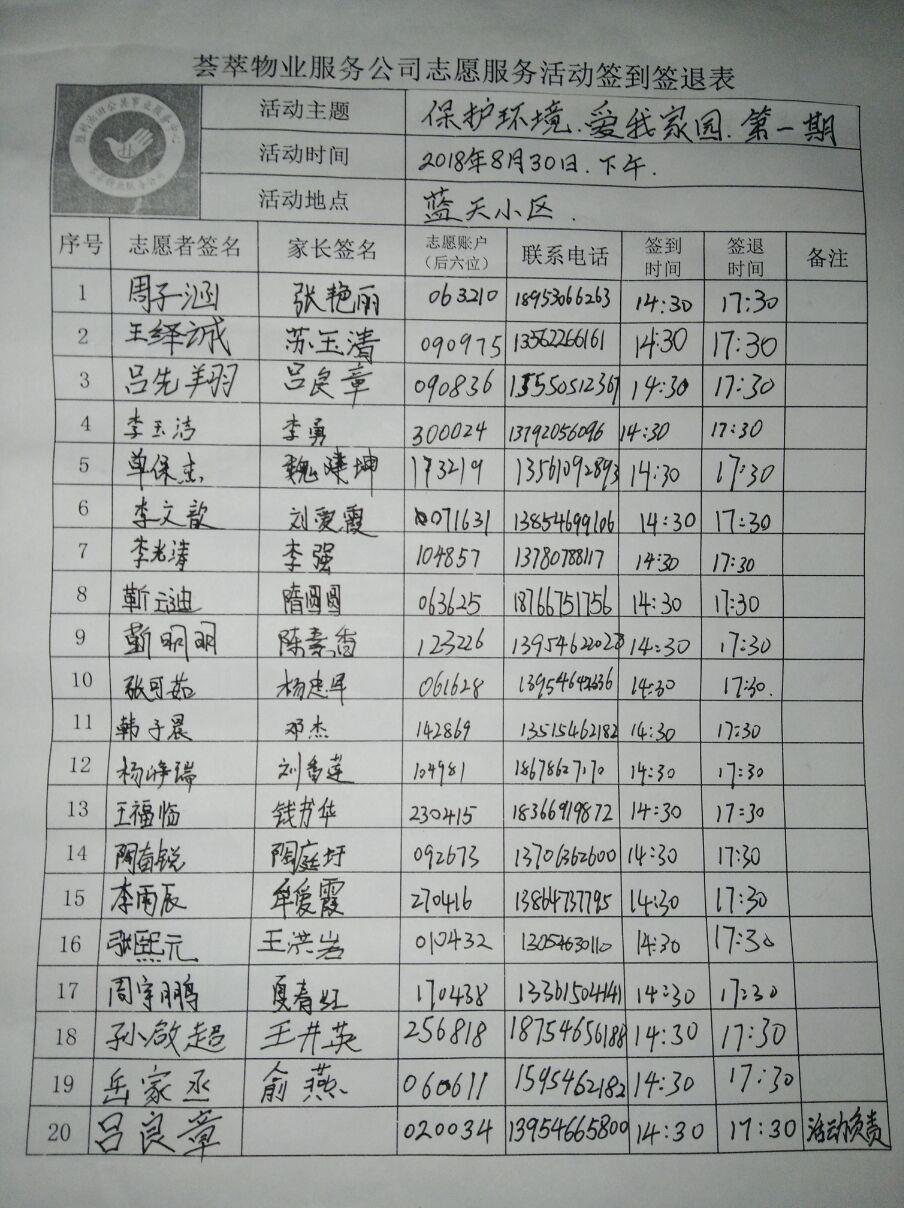 荟萃物业服务公司志愿服务活动签到签退表
活动主题 保护环境.爱我家园.第一期
活动时间 2018年8月30日.下午.
活动地点 蓝天小区.
序号 志愿者签名 家长签名 志愿账户（后六位） 联系电话 签到时间 签退时间 备注
1 周子涵 张艳丽 063210 18953066263 14:30 17:30
2 王绎诚 苏玉清 090975 13562266161 14:30 17:30
3 吕先翔羽 吕良章 090836 13550512367 14:30 17:30
4 李玉洁 李勇 300024 13792056096 14:30 17:30
5 单保杰 魏建坤 173219 13561092893 14:30 17:30
6 李文歆 刘爱霞 071631 13854699106 14:30 17:30
7 李光涛 李强 104857 13780788117 14:30 17:30
8 靳云迪 隋圆圆 063625 18766751756 14:30 17:30
9 靳明明 陈素香 123226 13954622028 14:30 17:30
10 张可茹 杨忠军 061628 14:30 17:30.
11 韩子晨 邓杰 142869 13515462182 14:30 17:30
12 杨峥瑞 刘香莲 104981 18678627170 14:30 17:30
13 王福临 钱芳华 230415 18366919872 14:30 17:30
14 陶首锐 陶庭圩 092673 13706362600 14:30 17:30
15 李雨辰 牟爱霞 270416 13864737795 14:30 17:30
16 张熙元 王洪岩 010432 13054630110 14:30 17:30
17 周宇鹏 夏春红 170438 13361504141 14:30 17:30
18 孙啟超 王井英 256818 18754656188 14:30 17:30
19 岳家丞 俞燕 060611 1595462182 14:30 17:30
20 吕良章 020034 13954665800 14:30 17:30 活动负责